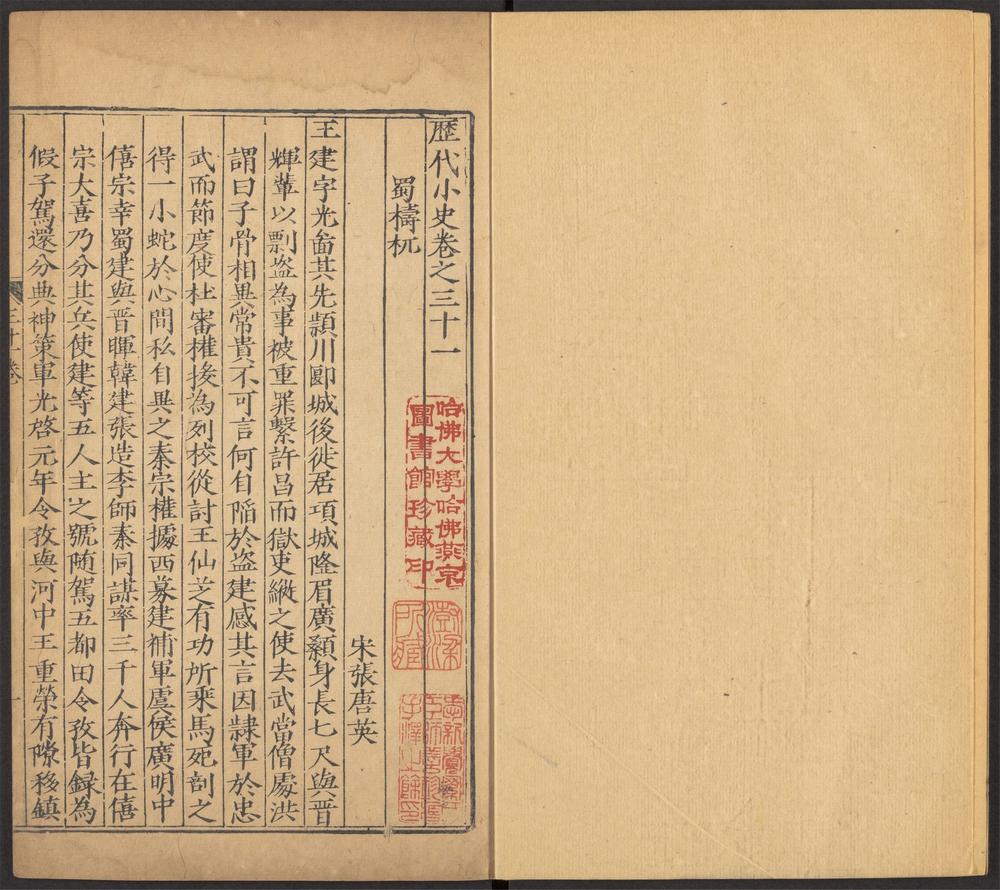 歷代小史卷之三十一
蜀檮杌
宋張唐英
王建字光啚其先潁川郾城後徙居項城隆眉廣顙身長七尺與晉
輝輩以剽盜為事被重罪繫許昌而獄吏縱之使去武當僧處洪
謂曰子骨相異常貴不可言何自陷於盜建感其言因隸軍於忠
武而節度使杜審權拔為列校從討王仙芝有功所乘馬死剖之
得一小蛇於心間私自異之秦宗權據西募建補軍虞侯廣明中
僖宗幸蜀建與晉暉韓建張造李師泰同謀率三千人奔行在僖
宗大喜乃分其兵使建等五人主之號随駕五都田令孜皆録為
假子駕還分典神策軍光啓元年令孜與河中王重榮有隙移鎮
三十一卷
一
哈佛大學哈佛燕京
圖書館珍藏印
所藏